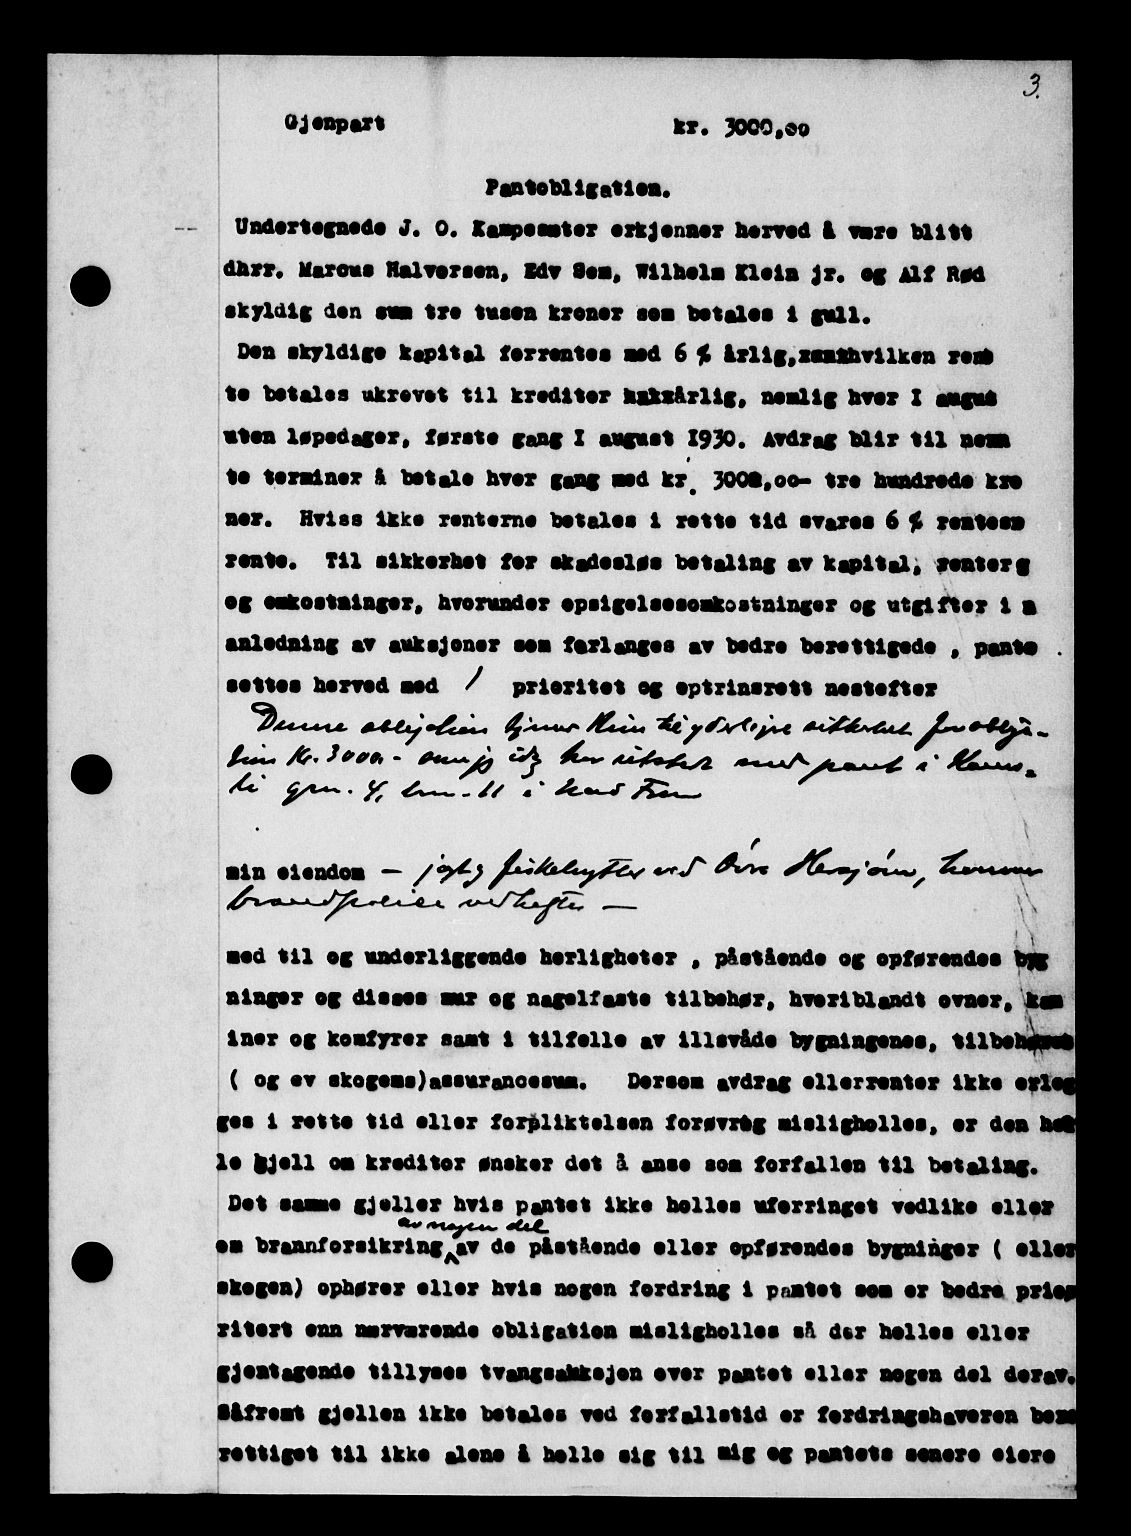 3.
Gjenpart kr. 3000,00
Pantobligation.
Undertegnede J. O. Kampesæter erkjenner herved å være blitt
dhrr. Marcus Halvorsen, Edv Sem, Wilhelm Klein jr. og Alf Rød
skyldig den sum tre tusen kroner som betales i gull.
Den skyldige kapital forrentes med 6 % årlig, hvilken ren
te betales ukrevet til kreditor årlig, nemlig hver I augus
uten løpedager, første gang I august I930. Avdrag blir til nevn
te terminer å betale hver gang med kr. 300,00- tre hundrede kro
ner. Hviss ikke renterne betales i rette tid svares 6 % rentes
rente. Til sikkerhet for skadesløs betaling av kapital, renter
og omkostninger, hvorunder opsigelsesomkostninger og utgifter i
anledning av auksjoner som forlanges av bedre berettigede , pante
settes herved med / prioritet og optrinsrett nestefter
Denne obligasjon tjener kun til yderligere sikkerhet for obliga-
sion Kr. 3000.- som jeg idag har utstedt med pant i
grn. 4, brn. 11 i
min eiendom – jagt og fiskehytter ved Øvre Hersjøen, hvorover
brandpolise vedheftes —
med til og underliggende herligheter , påstående og opførendes byg
ninger og disses mur og nagelfaste tilbehør, hveriblandt ovner, kam
iner og komfyrer samt i tilfelle av illsvåde bygningenes, tilbehørets
( og ev skogens)assurancesum. Dersom avdrag ellerrenter ikke erleg
ges i rette tid eller forpliktelsen forøvrig misligholles, er den hel
le gjell om kreditor ønsker det å anse som forfallen til betaling.
Det samme gjeller hvis pantet ikke holles uforringet vedlike eller
av nogen del
om brannforsikring av de påstående eller opførendes bygninger ( eller
skogen) ophører eller hvis nogen fordring i pantet som er bedre prio
ritert enn nærværende obligation misligholles så der holles eller
gjentagende tillyses tvangsakksjon over pantet eller nogen del derav.
Såfremt gjellen ikke betales ved forfallstid er fordringshaveren be
rettiget til ikke alene å holle sig til mig og pantets senere eiere